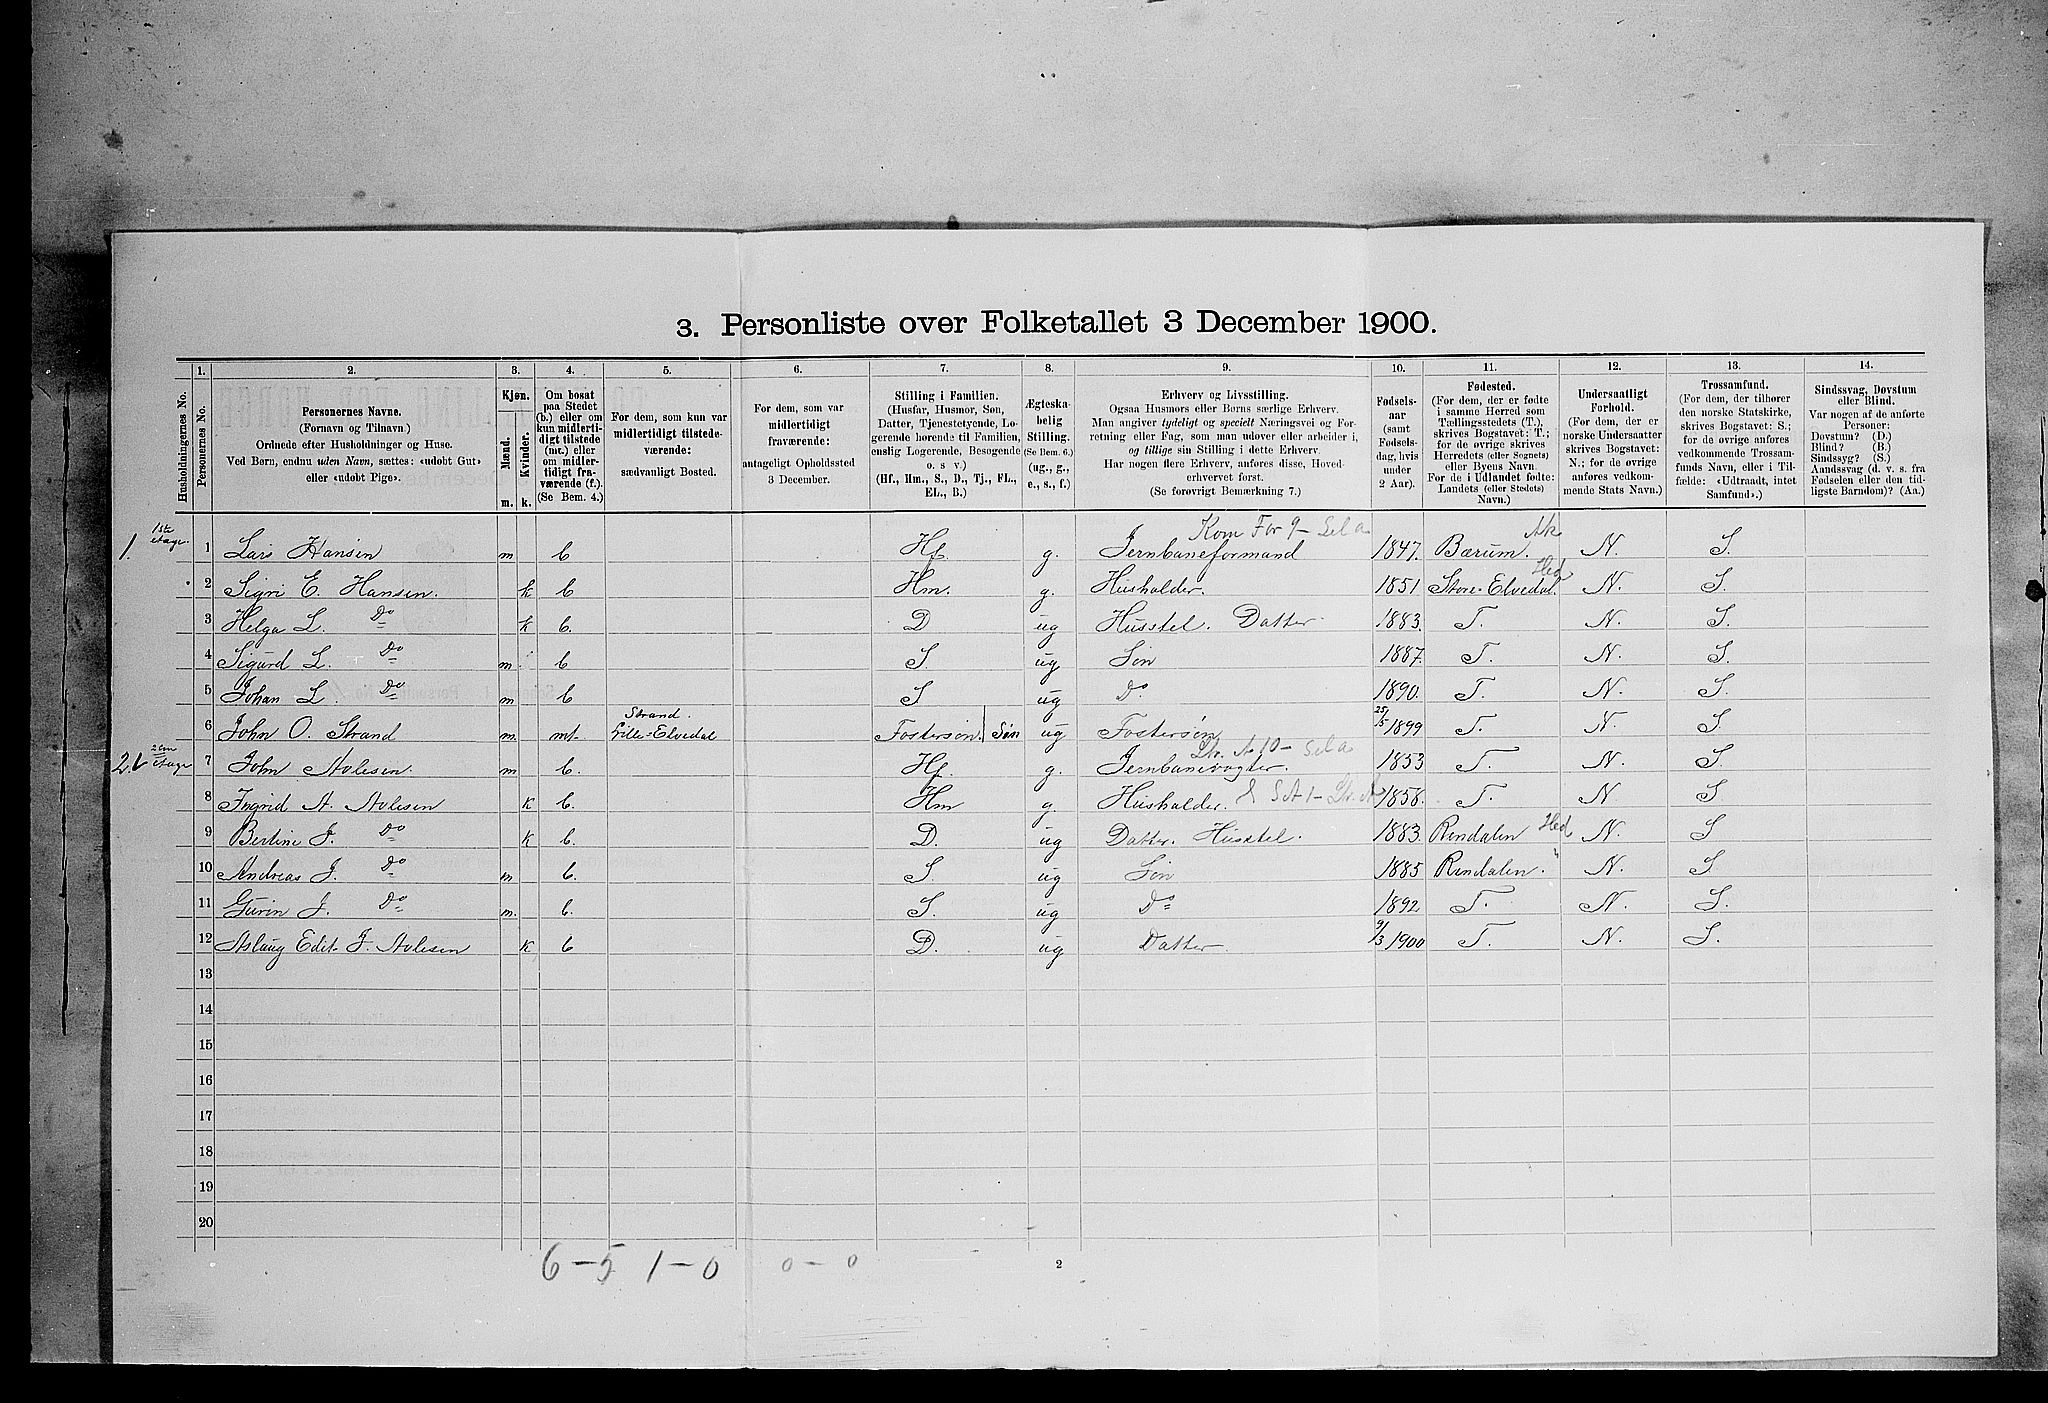 3. Personliste over Folketallet 3 December 1900.
1. 2. 3. 4. 5. 6. 7. 8. 9. 10. 11. 12. 13. 14.
Husholdningernes No.
Personernes No.
Personernes Navne.
(Fornavn og Tilnavn.)
Ordnede efter Husholdninger og Huse.
Ved Børn, endnu uden Navn, sættes: «udobt Gut»
eller «udobt Pige».
Kjøn.
Mænd.
Kvinder.
m. k.
Om bosat
paa Stedet
(b.) eller om
kun midlerti-
digt tilstede
(mt.) eller
om midler-
tidigt fra-
værende (f.).
(Se Bem. 4.)
For dem, som kun var
midlertidigt tilstede-
værende:
sædvanligt Bosted.
For dem, som var
midlertidigt
fraværende:
antageligt Opholdssted
3 December.
Stilling i Familien.
(Husfar, Husmor, Søn,
Datter, Tjenestetyende, Lo-
gerende hørende til Familien,
enslig Logerende, Besøgende
o. s v.)
(Hf., Hm., S., D., Tj., FL.,
EL., B.)
Ægteska-
belig
Stilling.
(Se Bem. 6.)
(ug., g.,
e., s., f.)
Erhverv og Livsstilling.
Ogsaa Husmors eller Børns særlige Erhverv.
Man angiver tydeligt og specielt Næringsvei og For-
retning eller Fag, som man udover eller arbeider i,
og tillige sin Stilling i dette Erhverv.
Har nogen flere Erhverv, anføres disse, Hoved-
erhvervet først.
(Se forøvrigt Bemærkning 7.)
Fødsels-
aar
(samt
Fødsels-
dag, hvis
under
2 Aar).
Fødested.
(For dem, der er fødte
i samme Herred som
Tællingsstedets (T.),
skrives Bogstavet: T.;
for de øvrige skrives
Herredets (eller Sognets)
eller Byens Navn.
For de i Udlandet fødte:
Landets (eller Stedets)
Navn.)
Undersaatligt
Forhold.
(For dem, der er
norske Undersaatter
skrives Bogstavet:
N.; for de øvrige
anføres vedkom-
mende Stats Navn.)
Trossamfund.
(For dem, der tilhører
den norske Statskirke,
skrives Bogstavet: S.;
for de øvrige anføres
vedkommende Trossam-
funds Navn, eller i Til-
fælde: «Udtraadt, intet
Samfund».)
Sindssvag, Døvstum
eller Blind.
Var nogen af de anførte
Personer:
Døvstum? (D.)
Blind? (B.)
Sindssyg? (S.)
Aandssvag (d. v. s. fra
Fødselen eller den tid-
ligste Barndom)? (Aa.)
1. 1ste etage. 1 Lars Hansen m b Hf. g. Jernbaneformand Kom For 9 - 1847. Bærum. Ak N. S.
2 Sigri E. Hansen. k b Hm. g. Husholder. 1851 Store-Elvedal. Hed N. S.
3 Helga L. Do k b. D ug Husstel. Datter. 1883. T. N. S.
4 Sigurd L. Do m. b S. ug Søn 1887. T. N. S.
5 Johan L. Do m b S ug Do. 1890. T. N. S.
6 John O. Strand m. mt. Strand. Lille-Elvedal Fostersøn. Søn ug Fostersøn 25/5 1899 T. N. S
2. 2den etage 7 John Avlesen. m b. Hf. g. Jernbanevogter. 10 - 1853 T. N. S.
8 Ingrid A. Avlesen k b. Hm g. Husholder. 1858. T. N S
9 Bertine J. Do k b. D. ug Datter. Husstel. 1883. Rendalen Hed N. S
10 Andreas J. Do m b. S. ug Søn 1885 Rendalen. " N. S
11 Gurin J. Do m. b. S. ug Do 1892 T. N. S.
12 Aslaug Edit J. Avlesen k b D. ug Datter. 9/3 1900 T. N. S.
13
14
15
16
17
18
19
20
6-5 1-0 0-0
2